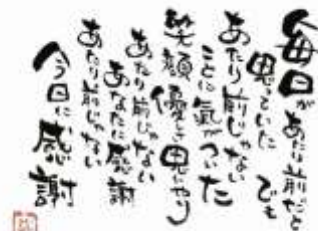 毎日があたり前だと
思っていた でも
あたり前じゃない
ことに氣がついた
笑顔 優しさ 思いやり
あたり前じゃない
あなたに感謝
あたり前じゃない
今日に感謝